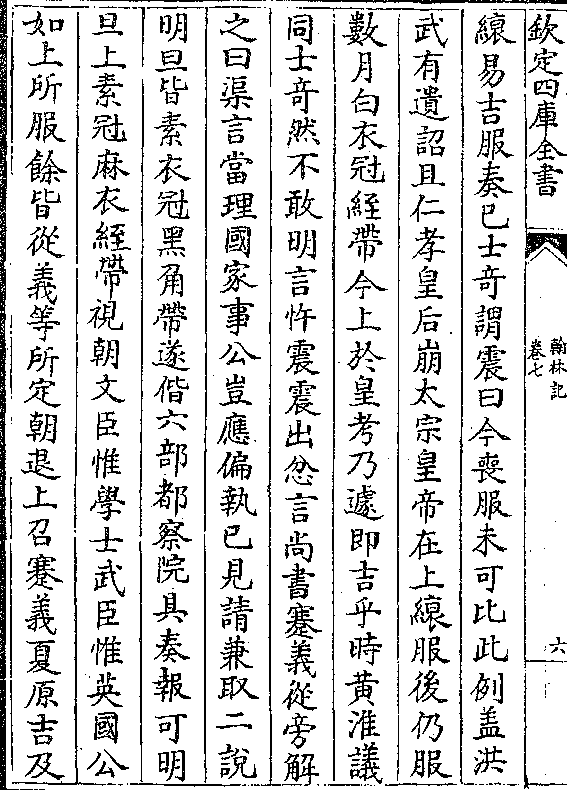 欽定四庫全書
翰林記
卷七
六
縗易吉服奏已士竒謂震曰今喪服未可比此例盖洪
武有遺詔且仁孝皇后崩太宗皇帝在上縗服後仍服
數月白衣冠絰帶今上於皇考乃遽即吉乎時黄淮議
同士竒然不敢明言忤震震出忿言尚書蹇義從旁解
之曰渠言當理國家事公豈應偏執已見請兼取二說
明旦皆素衣冠黑角帶遂偕六部都察院具奏報可明
旦上素冠麻衣絰帶視朝文臣惟學士武臣惟英國公
如上所服餘皆從義等所定朝退上召蹇義夏原吉及